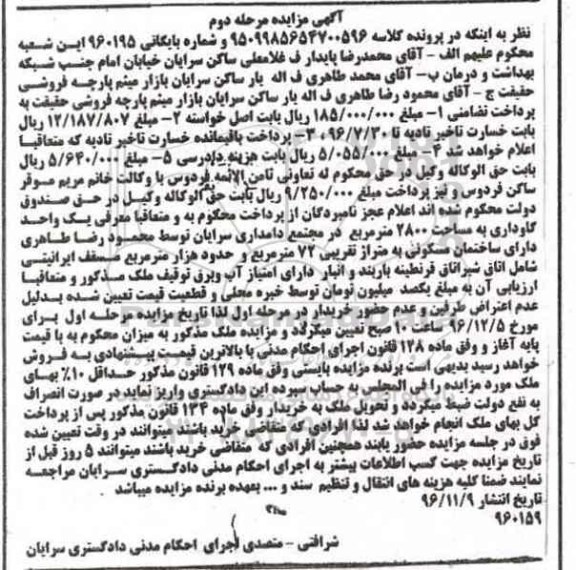 آگهی مزایده مرحله دوم
نظر به اینکه در پرونده کلاسه ۹۵۰۹۹۸۵۶۵۴۷۰۰۵۹۶ و شماره بایگانی ۹۶۰۱۹۵ این شعبه
محکوم علیهم الف - آقای محمدرضا پایدار ف غلامعلی ساکن سرایان خیابان امام جنب شبکه
بهداشت و درمان ب- آقای محمد طاهری ف اله یار ساکن سرایان بازار میثم پارچه فروشی
حقیقت ج - آقای محمود رضا طاهری ف اله یار ساکن سرایان بازار میثم پارچه فروشی حقیقت به
پرداخت تضامنی ۱- مبلغ ۱۸۵/۰۰۰/۰۰۰ ریال بابت اصل خواسته ۲- مبلغ ۱۲/۱۸۷/۸۰۷ ریال
بابت خسارت تاخیر تادیه تا ۹۶/۷/۳۰ ۳- پرداخت باقیمانده خسارت تاخیر تادیه که متعاقبا
اعلام خواهد شد ۴- مبلغ ۵/۰۵۵/۰۰۰ ریال بابت هزینه دادرسی ۵- مبلغ ۵/۶۴۰/۰۰۰ ریال
بابت حق الوکاله وکیل در حق محکوم له تعاونی ثامن الائمه فردوس با وکالت خانم مریم موقر
ساکن فردوس و نیز پرداخت مبلغ ۹/۲۵۰/۰۰۰ ریال بابت حق الوکاله وکیل در حق صندوق
دولت محکوم شده اند اعلام عجز نامبردگان از پرداخت محکوم به و متعاقبا معرفی یک واحد
گاوداری به مساحت ۲۸۰۰ مترمربع در مجتمع دامداری سرایان توسط محمود رضا طاهری
دارای ساختمان مسکونی به متراژ تقریبی ۷۲ مترمربع و حدود هزار مترمربع مسقف ایرانیتی
شامل اتاق شیر اتاق قرنطینه باربند و انبار دارای امتیاز آب وبرق توقیف ملک مذکور و متعاقبا
ارزیابی آن به مبلغ یکصد میلیون تومان توسط خبره محلی و قطعیت قیمت تعیین شده بدلیل
عدم اعتراض طرفین و عدم حضور خریدار در مرحله اول لذا تاریخ مزایده مرحله اول برای
مورخ ۹۶/۱۲/۵ ساعت ۱۰ صبح تعیین میگردد و مزایده ملک مذکور به میزان محکوم به با قیمت
پایه آغاز و وفق ماده ۱۲۸ قانون اجرای احکام مدنی با بالاترین قیمت پیشنهادی به فروش
خواهد رسید بدیهی است برنده مزایده بایستی وفق ماده ۱۲۹ قانون مذکور حداقل ۱۰٪ بهای
ملک مورد مزایده را فی المجلس به حساب سپرده این دادگستری واریز نماید در صورت انصراف
به نفع دولت ضبط میگردد و تحویل ملک به خریدار وفق ماده ۱۳۴ قانون مذکور پس از پرداخت
کل بهای ملک انجام خواهد شد لذا افرادی که متقاضی خرید باشند میتوانند در وقت تعیین شده
فوق در جلسه مزایده حضور یابند همچنین افرادی که متقاضی خرید باشند میتوانند ۵ روز قبل از
تاریخ مزایده جهت کسب اطلاعات بیشتر به اجرای احکام مدنی دادگستری سرایان مراجعه
نمایند ضمنا کلیه هزینه های انتقال و تنظیم سند و ... بعهده برنده مزایده میباشد
تاریخ انتشار ۹۶/۱۱/۹
۹۶۰۱۵۹
شرافتی - متصدی اجرای احکام مدنی دادگستری سرایان